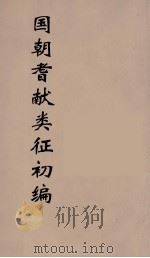 国朝耆献类征初编
新狗
www.mtoou.info